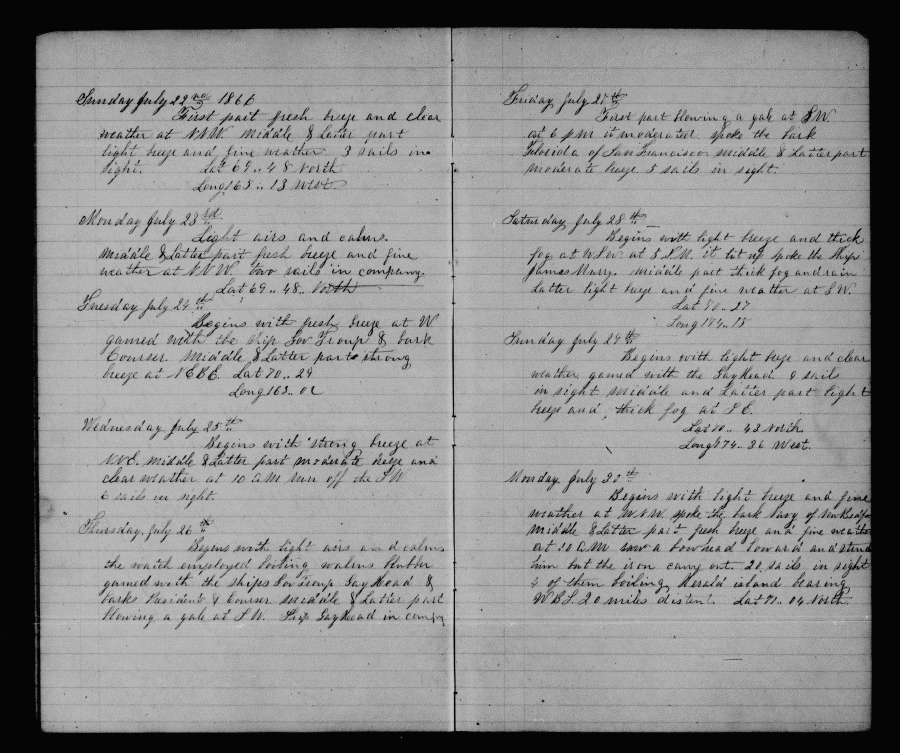 Sunday July 22nd 1866
First part fresh breeze and clear
weather at NNW. middle & Latter part
light breeze and fine weather 3 sails in
sight. Lat 69.. 48 North
Long 165.. 13 West
Monday July 23rd
Light airs and calms.
middle & Latter part fresh breeze and fine
weather at NNW. two sails in company.
Lat 69.. 48.. North
Tuesday July 24th
Begins with fresh breeze at W
gamed with the ship Gov Troup & bark
Courser. middle & Latter part strong
breeze at NEBE. Lat 70.. 24
Long 163.. 02
Wednesday July 25th
Begins with strong breeze at
NNE. middle & Latter part moderate breeze and
clear weather at 10 AM run off the SW
6 sails in sight.
Thursday, July 26th
Begins with light airs and calms
the watch employed boiling walrus blubber
gamed with the ships Gov Troup Gay Head &
barks President & Courser middle & Latter part
blowing a gale at SW. Ship Gay Head in compy
Friday July 27th
First part blowing a gale at SW.
at 6 pm it moderated spoke the bark
of San Francisco middle & Latter part
moderate breeze 5 sails in sight.
Saturday July 28th
Begins with light breeze and thick
fog at WSW. at 5 P.M. it lit up spoke the Ship
James Murry. middle part thick fog and rain
Latter light breeze and fine weather at SW.
Lat 70.. 27
Long 174.. 15
Sunday July 29th
Begins with light breeze and clear
weather gamed with the Gay Head 9 sails
in sight middle and Latter part light
breeze and thick fog at SE.
Lat 70.. 43 North
Long 174.. 36 West.
Monday July 30th
Begins with light breeze and fine
weather at WNW. spoke the bark Navy of New Bedford
middle & Latter part fresh breeze and fine weather
at 10 AM saw a bowhead lowered and struck
him but the iron came out. 20 sails in sight
4 of them boiling Herald island bearing
WBS. 20 miles distent. Lat 71.. 04 North